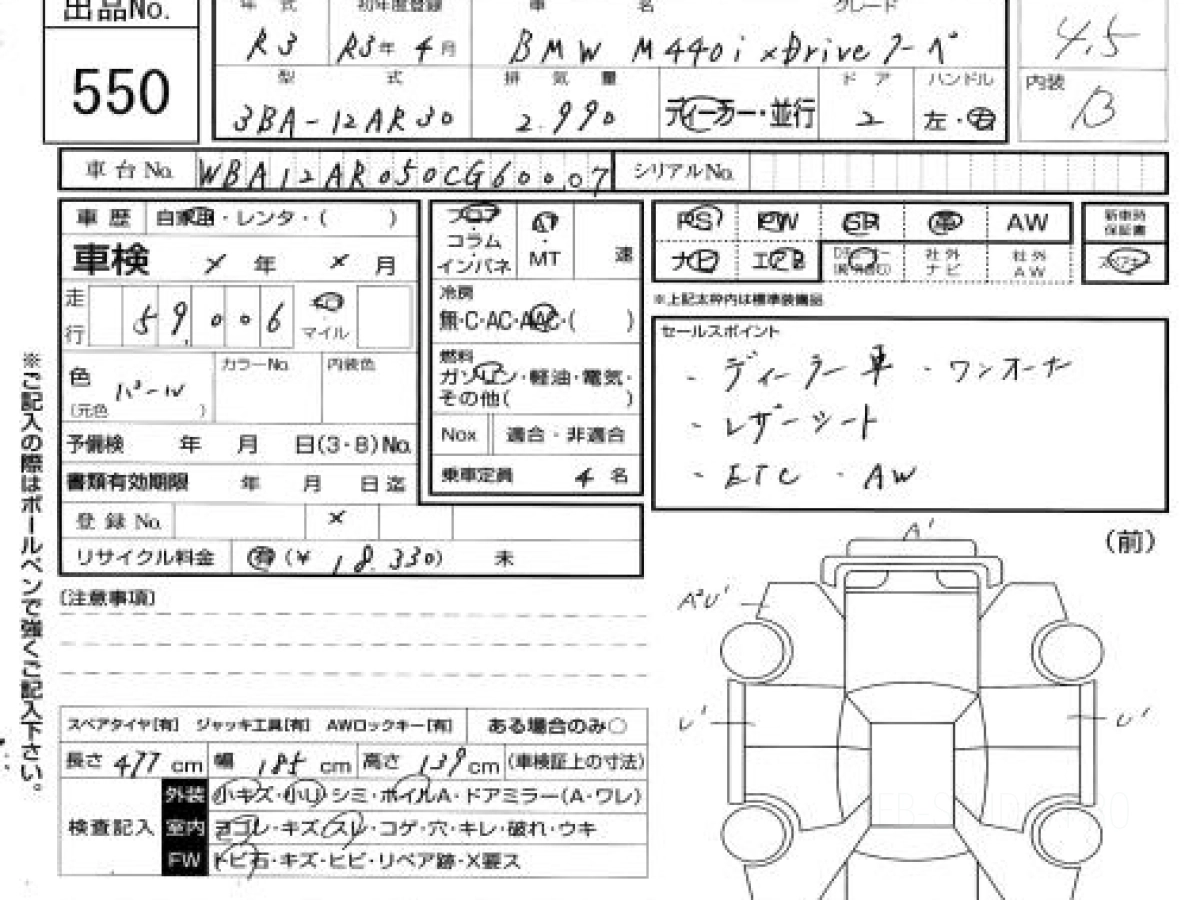 出品No. 年 式 初年度登録 車 名 グレード 4.5
550 R3 R3年 4月 BMW M440i xDrive クーペ
型 式 排 気 量 ドア ハンドル 内装
3BA-12AR30 2.990 ディーラー・並行 2 左・右 B
車台No. WBA12AR050CG60007 シリアルNo.
車歴 自家用・レンタ・( )
車検 × 年 × 月
走行 59,006 マイル
色 パール (元色 ) カラーNo. 内装色
予備検 年 月 日(3・8)No.
書類有効期限 年 月 日迄
登録No. ×
リサイクル料金 有 (¥ 18,330) 未
フロア コラム インパネ AT・MT 速
冷房
無・C・AC・AAC・( )
燃料
ガソリン・軽油・電気・
その他( )
Nox 適合・非適合
乗車定員 4名
PS PW SR 革 AW 新車時保証書
ナビ エアB 社外ナビ 社外AW
※上記太枠内は標準装備品
セールスポイント
- ディーラー車 ・ワンオーナー
- レザーシート
- ETC ・AW
(前)
A'
U'
〔注意事項〕
スペアタイヤ[有] ジャッキ工具[有] AWロックキー[有] ある場合のみ○
長さ 477 cm 幅 185 cm 高さ 139 cm (車検証上の寸法)
検査記入
外装 小キズ・小U・シミ・ホイルA・ドアミラー(A・ワレ)
室内 ヨゴレ・キズ・スレ・コゲ・穴・キレ・破れ・ウキ
FW トビ石・キズ・ヒビ・リペア跡・X要ス
※ご記入の際はボールペンで強くご記入下さい。